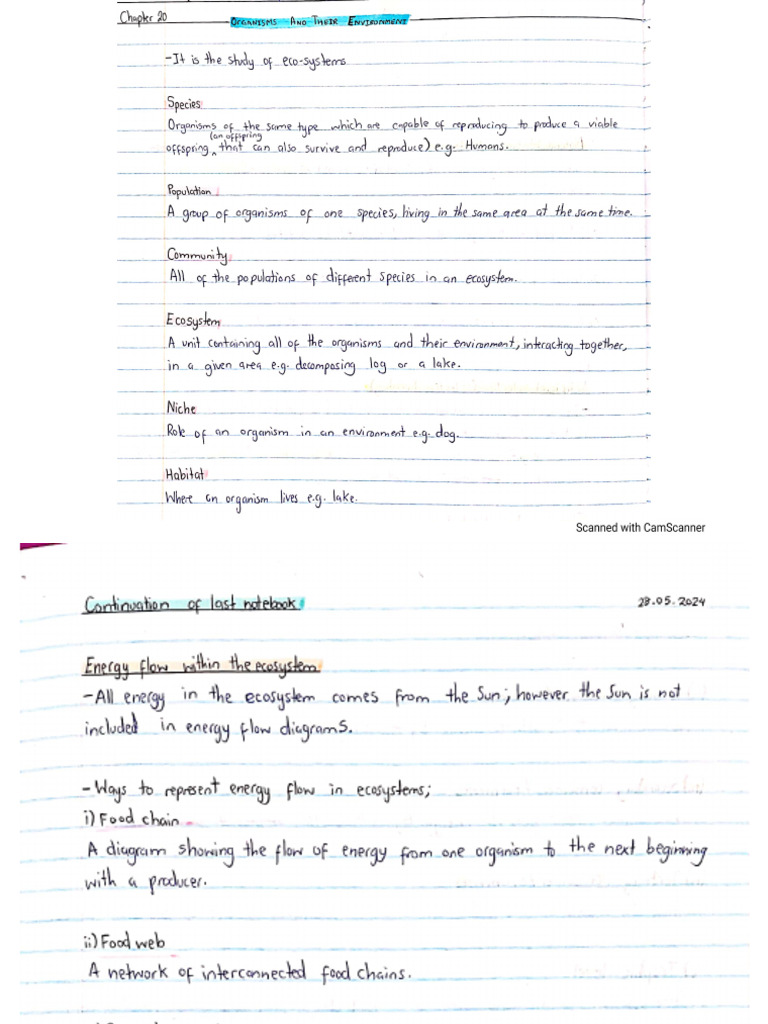 Chapter 20
ORGANISMS AND THEIR ENVIRONMENT
-It is the study of eco-systems.
Species
Organisms of the same type which are capable of reproducing to produce a viable
(an offspring
offspring ‸ that can also survive and reproduce) e.g. Humans.
Population
A group of organisms of one species, living in the same area at the same time.
Community
All of the populations of different species in an ecosystem.
Ecosystem
A unit containing all of the organisms and their environment, interacting together,
in a given area e.g. decomposing log or a lake.
Niche
Role of an organism in an environment e.g. dog.
Habitat
Where an organism lives e.g. lake.
Scanned with CamScanner
Continuation of last notebook
28.05.2024
Energy flow within the ecosystem
-All energy in the ecosystem comes from the Sun; however the Sun is not
included in energy flow diagrams.
-Ways to represent energy flow in ecosystems;
i) Food chain
A diagram showing the flow of energy from one organism to the next beginning
with a producer.
ii) Food web
A network of interconnected food chains.